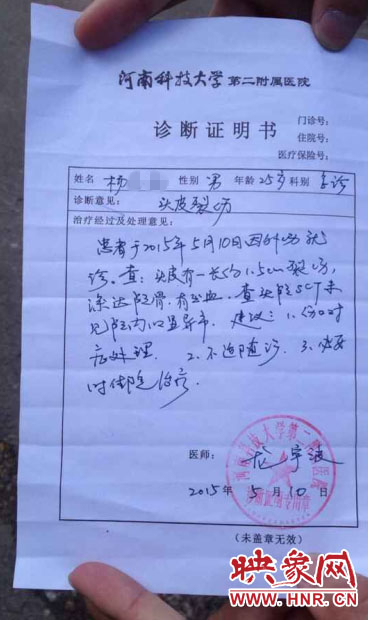 河南科技大学 第二附属医院
诊断证明书
门诊号:
住院号:
医疗保险号:
姓名 杨 性别 男 年龄 25岁 科别 急诊
诊断意见: 头皮裂伤
治疗经过及处理意见:
患者于2015年5月10日因外伤就
诊。查:头皮有一长约1.5cm裂伤,
深达颅骨,有出血。查头颅CT未
见颅内明显异常。建议:1.伤口对
症处理. 2.不适随诊. 3.必要
时住院治疗.
医师:
2015年 5月 10日
(未盖章无效)
映象网
www.HNR.CN